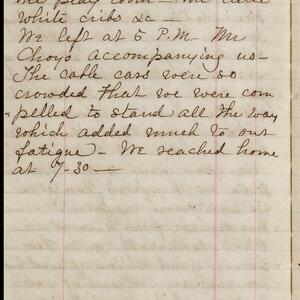 the play room - We
White cribs &c -
We left at 5 P.M. Mr
Choyo accompanying us -
The cable cars were so
crowded that we were com
=pelled to stand all the way
which added much to our
fatigue - We reached home
at 7-30 -